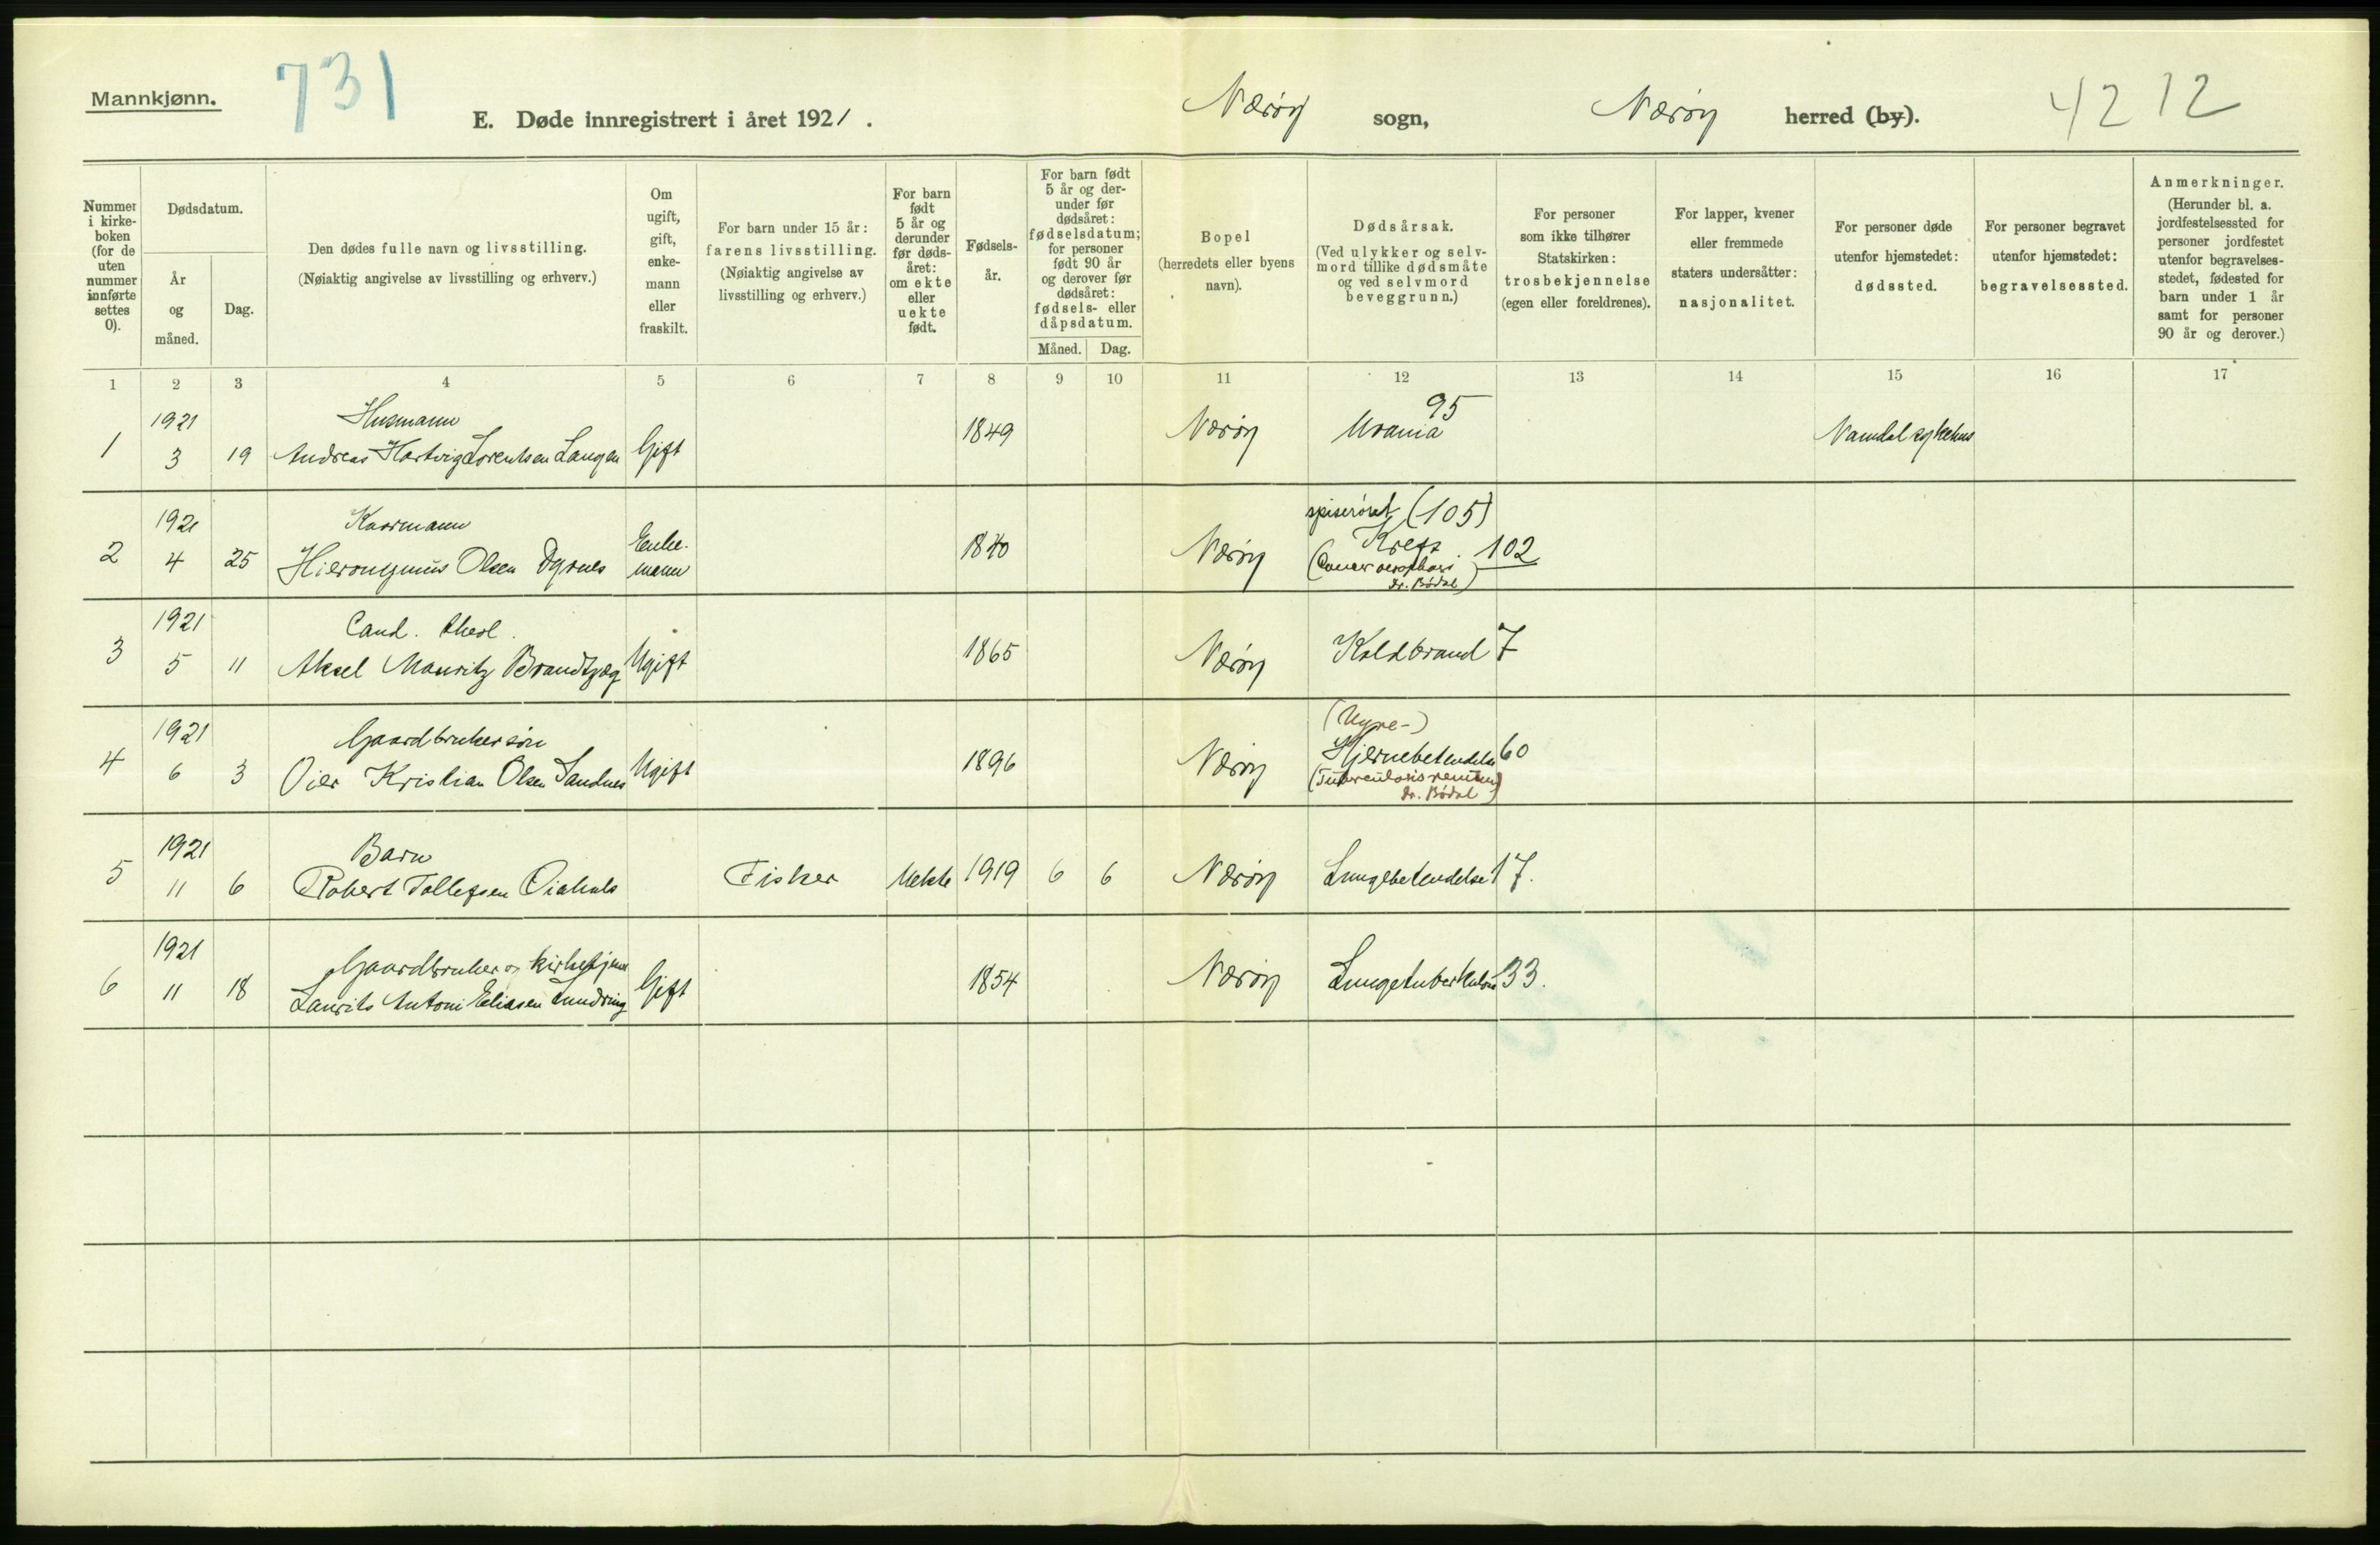 Mannkjønn.
731
E. Døde innregistrert i året 1921 .
Nærøy sogn,
Nærøy herred (by).
4212
Nummer i kirke-boken (for de uten nummer innførte settes 0).
Dødsdatum.
År og måned.
Dag.
Den dødes fulle navn og livsstilling.
(Nøiaktig angivelse av livsstilling og erhverv.)
Om ugift, gift, enke-mann eller fraskilt.
For barn under 15 år:
farens livsstilling.
(Nøiaktig angivelse av livsstilling og erhverv.)
For barn født 5 år og derunder før døds-året: om ekte eller uekte født.
Fødsels-år.
For barn født 5 år og der-under før dødsåret: fødselsdatum; for personer født 90 år og derover før dødsåret: fødsels- eller dåpsdatum.
Måned. Dag.
Bopel
(herredets eller byens navn).
Dødsårsak.
(Ved ulykker og selv-mord tillike dødsmåte og ved selvmord beveggrunn.)
For personer som ikke tilhører Statskirken: trosbekjennelse (egen eller foreldrenes).
For lapper, kvener eller fremmede staters undersåtter: nasjonalitet.
For personer døde utenfor hjemstedet: dødssted.
For personer begravet utenfor hjemstedet: begravelsessted.
Anmerkninger.
(Herunder bl. a. jordfestelsessted for personer jordfestet utenfor begravelses-stedet, fødested for barn under 1 år samt for personer 90 år og derover.)
1 2 3 4 5 6 7 8 9 10 11 12 13 14 15 16 17
1921 Husmann 95
1 3 19 Andreas Hartvig Lorentsen Langen Gift 1849 Nærøy Urania Namdal sykehus
1921 Kaarmann spiserøret (105)
2 4 25 Hieronymus Olsen Dyrnes Enke-mann 1840 Nærøy Kreft 102
(Cancer oesophagi
Dr. Bödal)
1921 Cand. theol.
3 5 11 Aksel Mauritz Brandtzæg Ugift 1865 Nærøy Koldbrand 7
1921 Gaardbrukersøn (Nyre-)
4 6 3 Oier Kristian Olsen Sandnes Ugift 1896 Nærøy Hjernebetendelse 60
(Tuberculosis renum
Dr. Bödal)
1921 Barn
5 11 6 Robert Tollefsen Fisker Uekte 1919 6 6 Nærøy Lungebetendelse 17.
1921 Gaardbruker og kirketjener
6 11 18 Laurits Antoni Eliasen Lundring Gift 1854 Nærøy Lungetuberkulose 33.